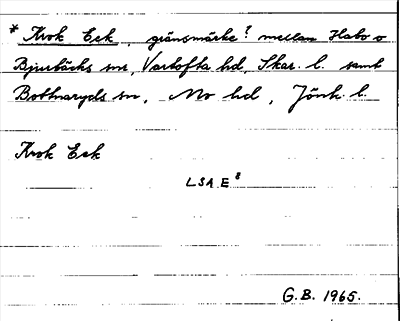 * Krok Eek, gränsmärke? mellan Habo o
Bjurbäcks snr, Vartofta hd, Skar. l. samt
Bottnaryds sn, Mo hd, Jönk. l.
Krok Eek
LSA E 8
G.B. 1965.